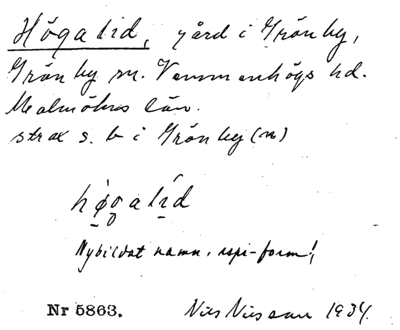 Högalid, gård i Grönby,
Grönby sn. Vemmenhögs hd.
Malmöhus län.
strax s. b i Grönby (n)
høgalid
Nybildat namn, rspr-form!
Nr 5863. Nils Nilsson 1934.